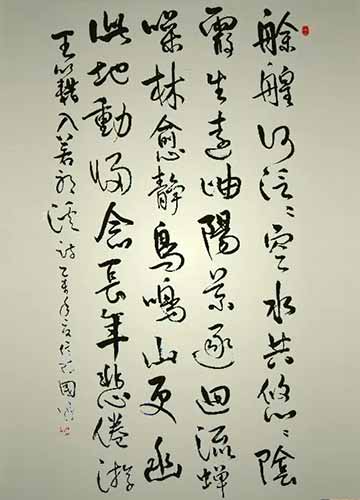 艅艎何泛〻空水共悠〻陰
霞生遠岫陽景逐迴流蟬
噪林愈靜鳥鳴山更幽
此地動歸念長年悲倦游
王籍入若耶溪詩乙未年夏